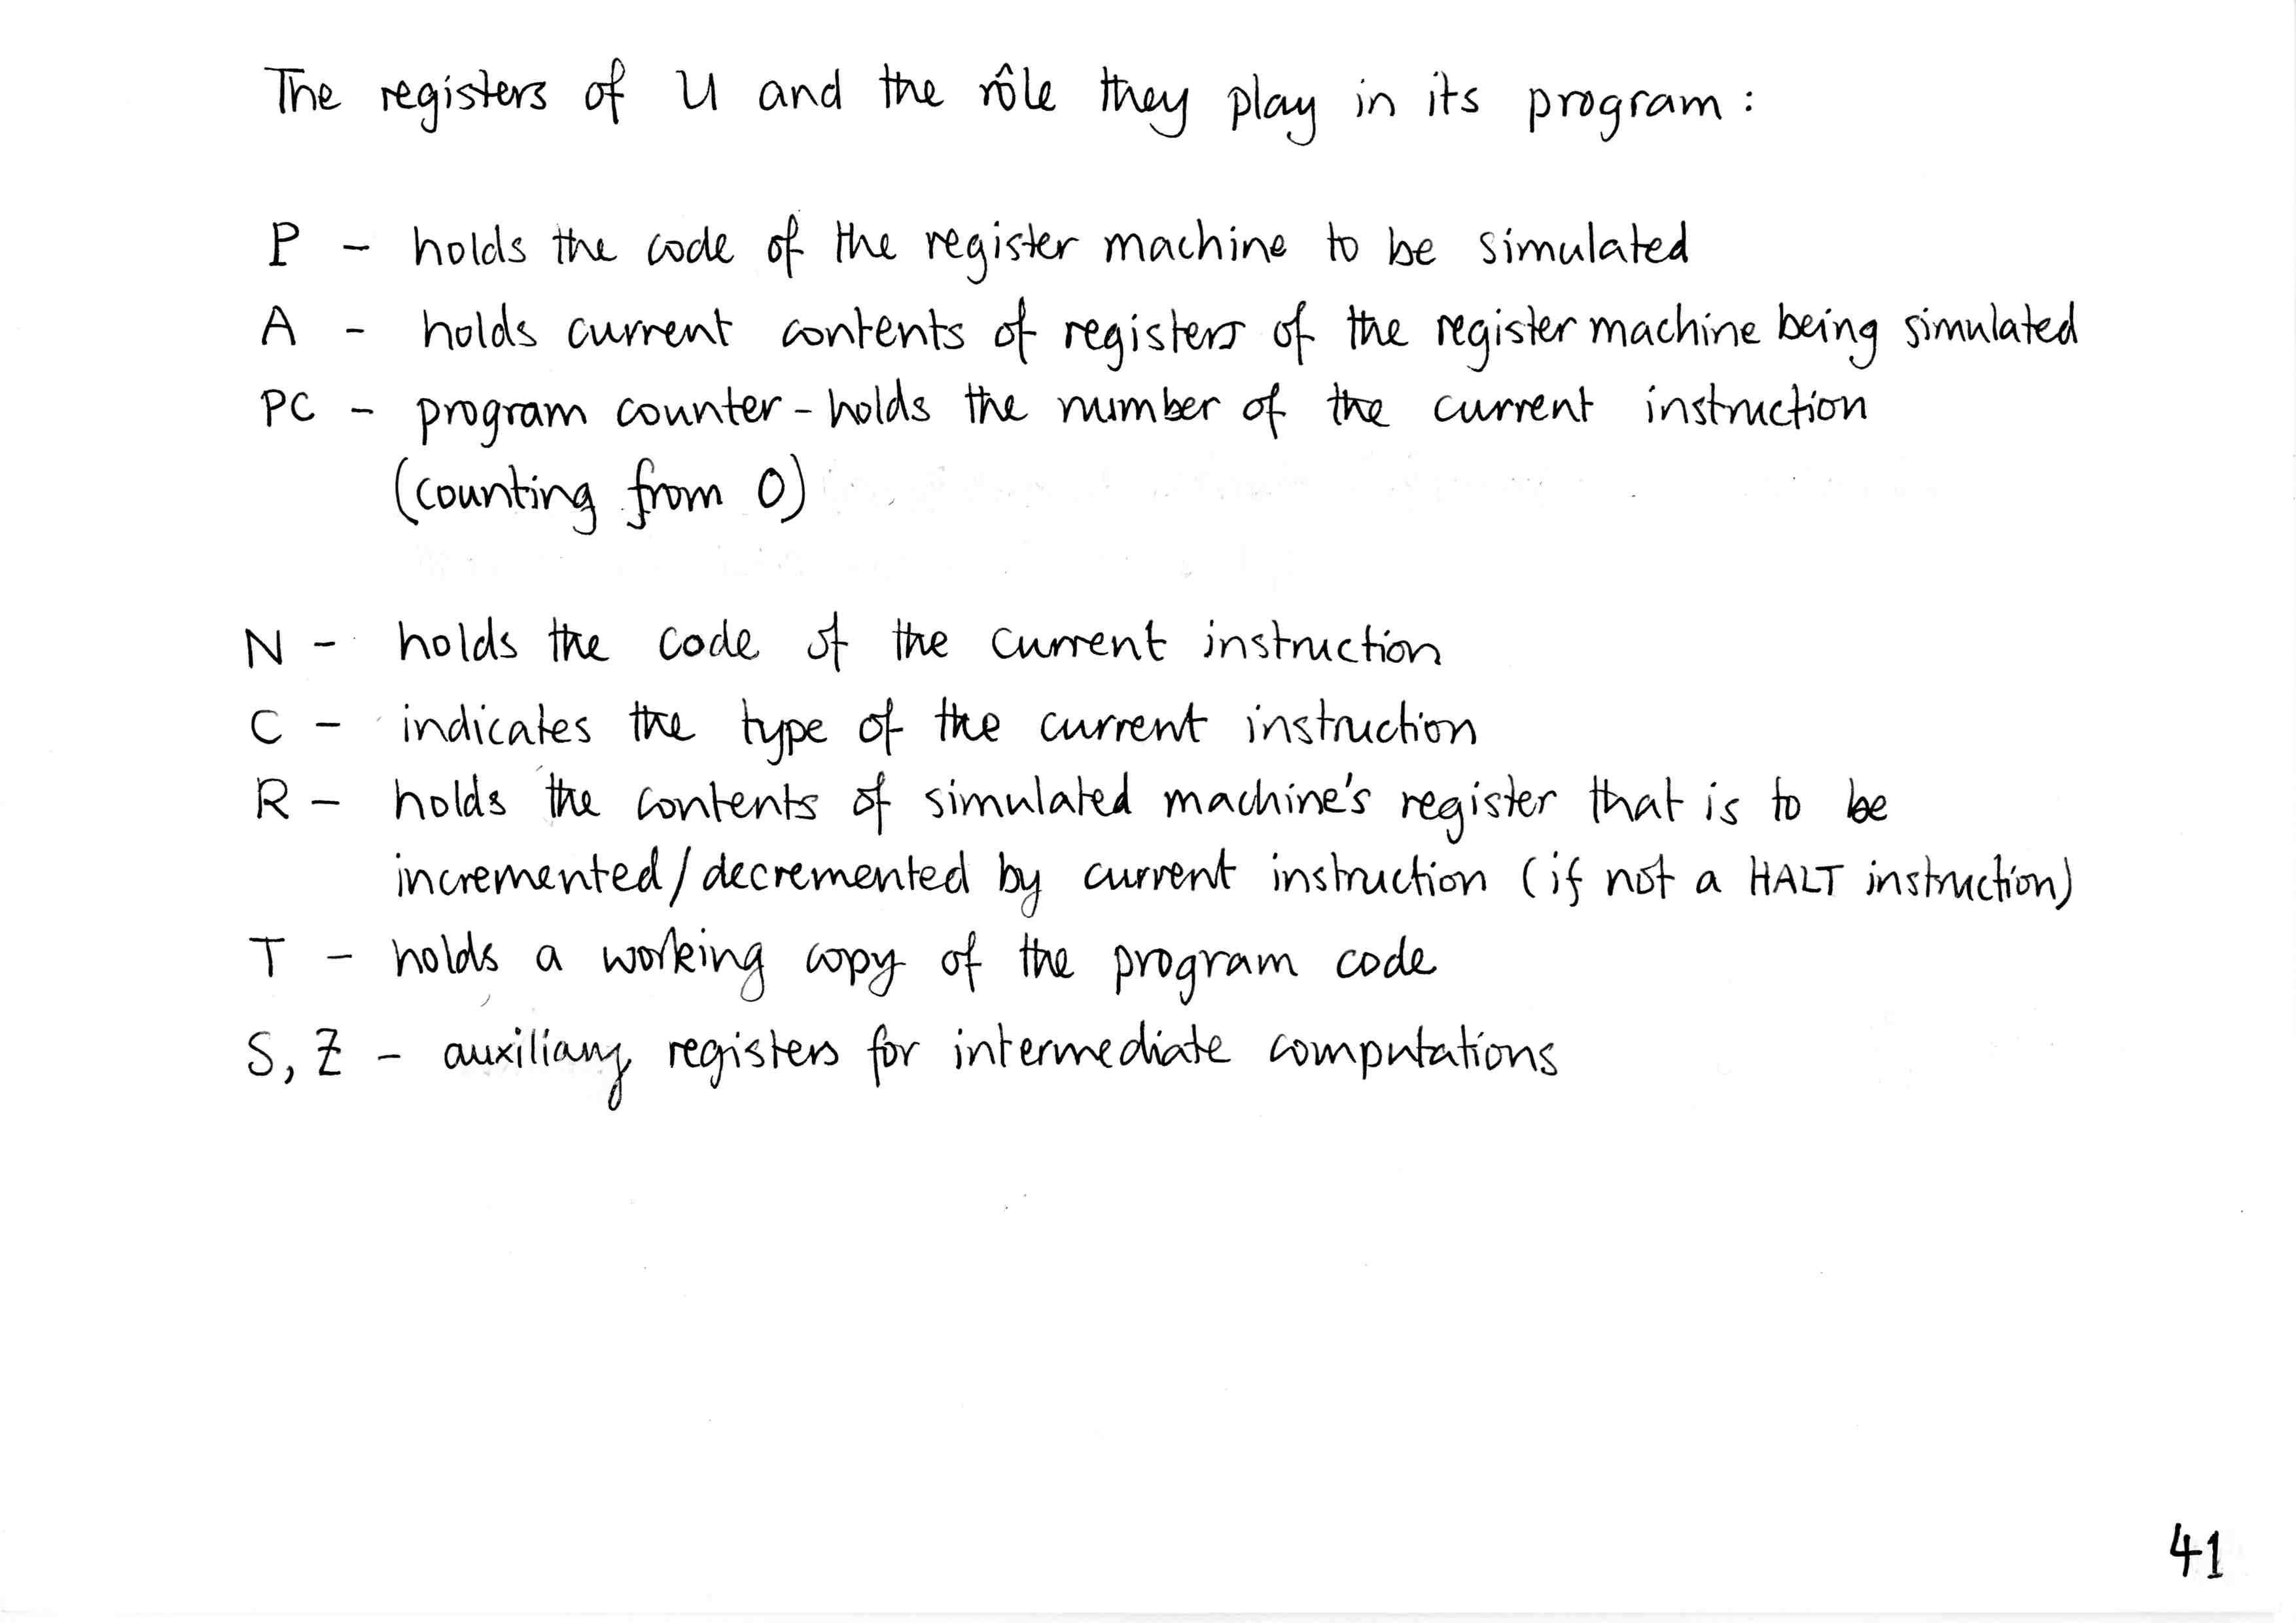 The registers of U and the rôle they play in its program :
P - holds the code of the register machine to be simulated
A - holds current contents of registers of the register machine being simulated
PC - program counter - holds the number of the current instruction
(counting from 0)
N - holds the code of the current instruction
C - indicates the type of the current instruction
R - holds the contents of simulated machine's register that is to be
incremented/decremented by current instruction (if not a HALT instruction)
T - holds a working copy of the program code
S, Z - auxiliary registers for intermediate computations
41